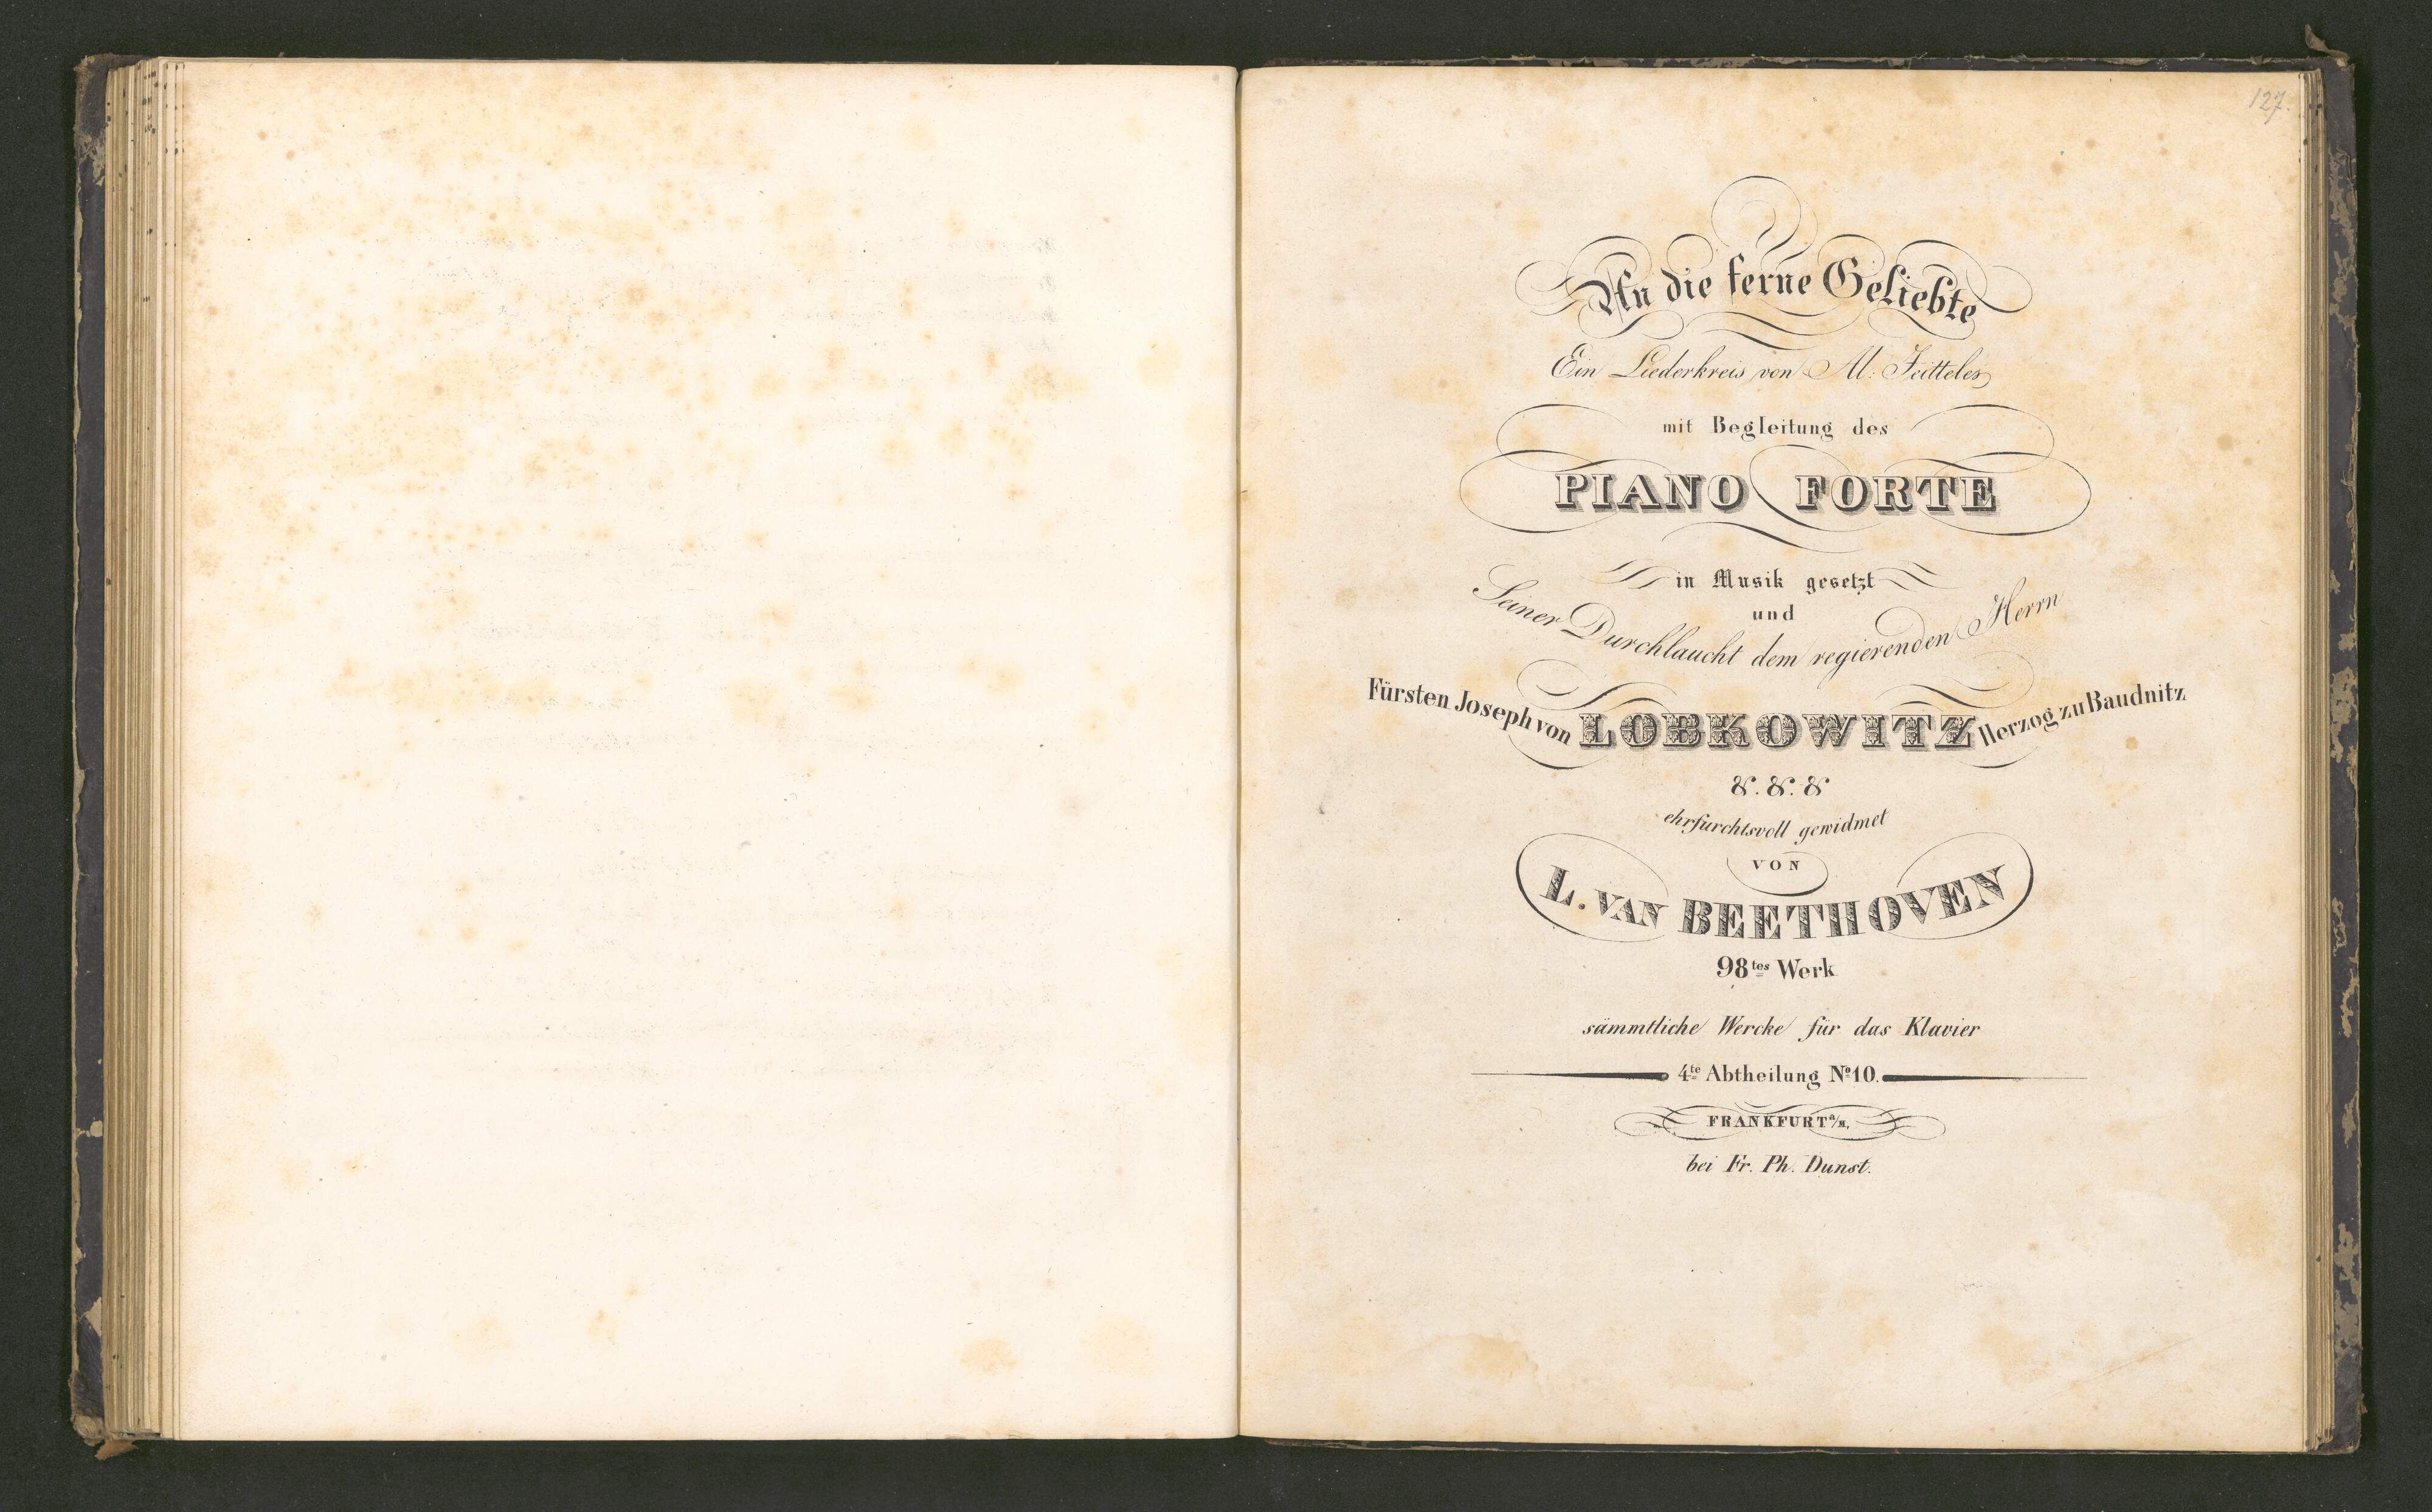 127.
An die ferne Geliebte
Ein Liederkreis von Al: Jeitteles
mit Begleitung des
PIANO FORTE
in Musik gesetzt
und
Seiner Durchlaucht dem regierenden Herrn
Fürsten Joseph von LOBKOWITZ Herzog zu Baudnitz
&. &. &
ehrfurchtsvoll gewidmet
VON
L. VAN BEETHOVEN
98tes Werk
sämmtliche Wercke für das Klavier
4te Abtheilung No 10.
FRANKFURT a/M,
bei Fr. Ph. Dunst.